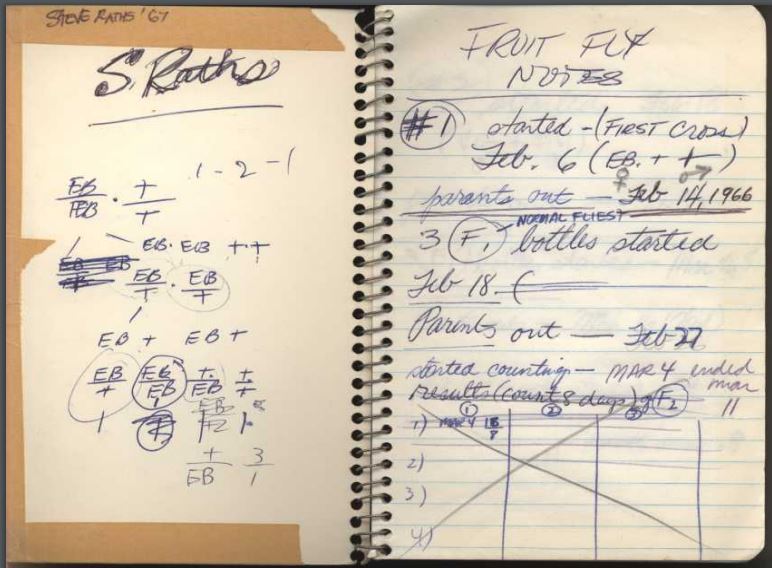 STEVE RATHS '67
S. Raths
1-2-1
EB/EB · +/+
EB · EB + · +
EB/+ · EB/+
EB + EB +
EB/+ EB/EB +/EB +/+
+/EB 3/1
FRUIT FLY
NOTES
#1 started - (FIRST CROSS)
Feb. 6 (EB. + +)
♀ ♂
parents out — Feb 14, 1966
NORMAL FLIES
3 F1 bottles started
Feb 18. (
Parents out — Feb 27
started counting - MAR 4 ended
mar
results (count 8 days) of F2 11
① ② ③
1) MAR 4 18/8
2)
3)
4)